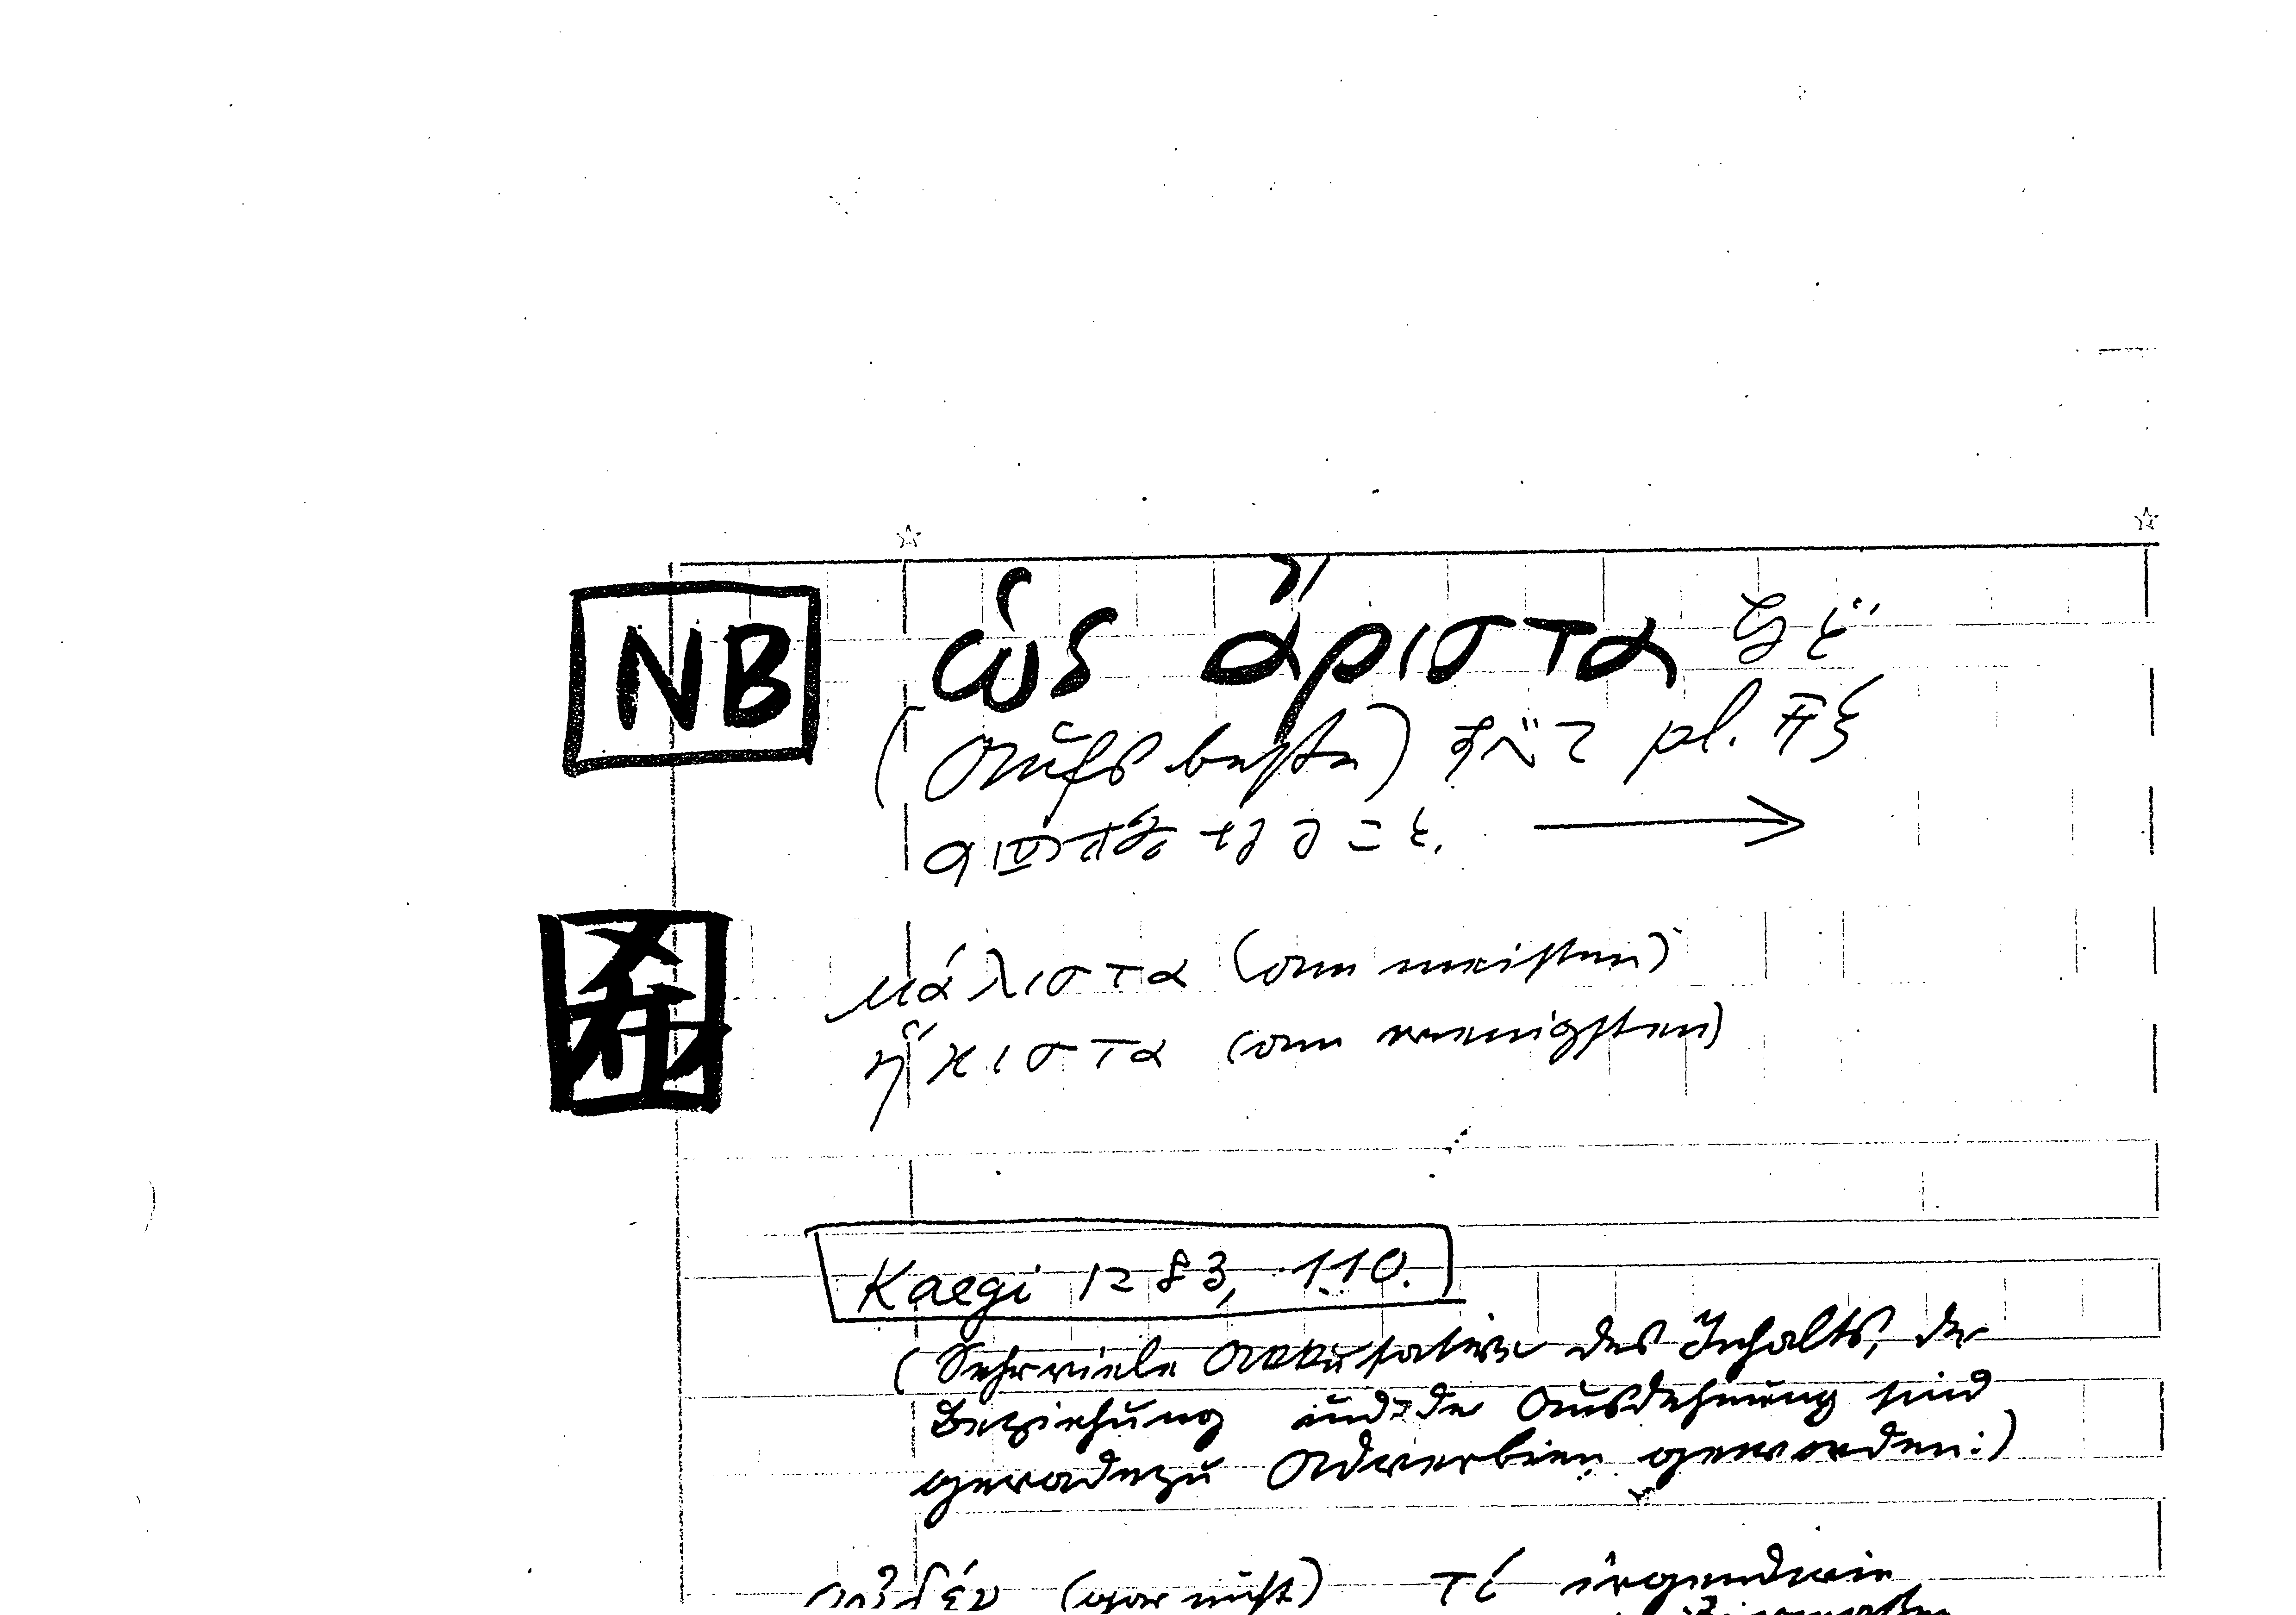 NB
ὡς ἄριστα など
(aufs beste) すべて pl. 形
の
なること。 →
希
μάλιστα (am meisten)
ἥκιστα (am wenigsten)
Kaegi 1283, 110.
(Sehr viele Akkusative des Inhalts, der
Beziehung und der Ausdehnung sind
geradezu Adverbien geworden:)
οὐδέν (gar nicht) τί irgendwie